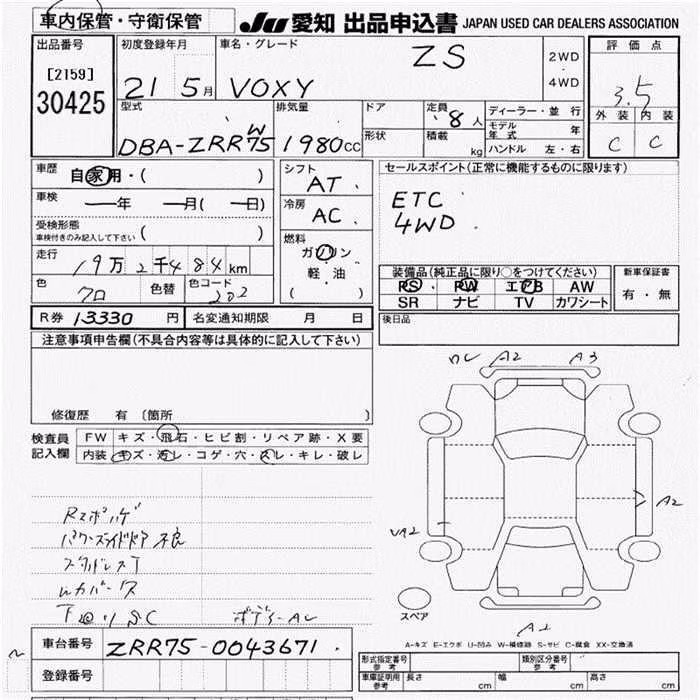 車内保管・守衛保管
JU 愛知 出品申込書 JAPAN USED CAR DEALERS ASSOCIATION
出品番号
[2159]
30425
初度登録年月
21 5月
車名・グレード
VOXY ZS
2WD
・
4WD
評価点
3.5
外装 内装
C C
型式
DBA-ZRR75W
排気量
1980CC
ドア
形状
定員
8人
積載
kg
ディーラー・並行
モデル年式 年
ハンドル 左・右
車歴
自家用・( )
車検
年 月( 日)
受検形態
車検付きのみ記入して下さい ( )
走行
19万2千484km
色
クロ
色替
色コード
202
シフト
AT
冷房
AC
燃料
ガソリン
軽・油
( )
セールスポイント(正常に機能するものに限ります)
ETC
4WD
装備品(純正品に限り○をつけてください)
PS PW エアB AW
SR ナビ TV カワシート
新車保証書
有・無
R券 13330 円
名変通知期限 月 日
後日品
注意事項申告欄(不具合内容等は具体的に記入して下さい)
修復歴 有 〔箇所 〕
検査員
記入欄
FW キズ・飛石・ヒビ割・リペア跡・X要
内装 キズ・汚レ・コゲ・穴・スレ・キレ・破レ
A2 A3
A2
A1
スペア
A-キズ E-エクボ U-凹み W-補修跡 S-サビ C-腐食 XX-交換済
車台番号
ZRR75-0043671
登録番号
形式指定番号
参考
類別区分番号
参考
車庫証明用
参考
長さ cm
幅 cm
高さ cm